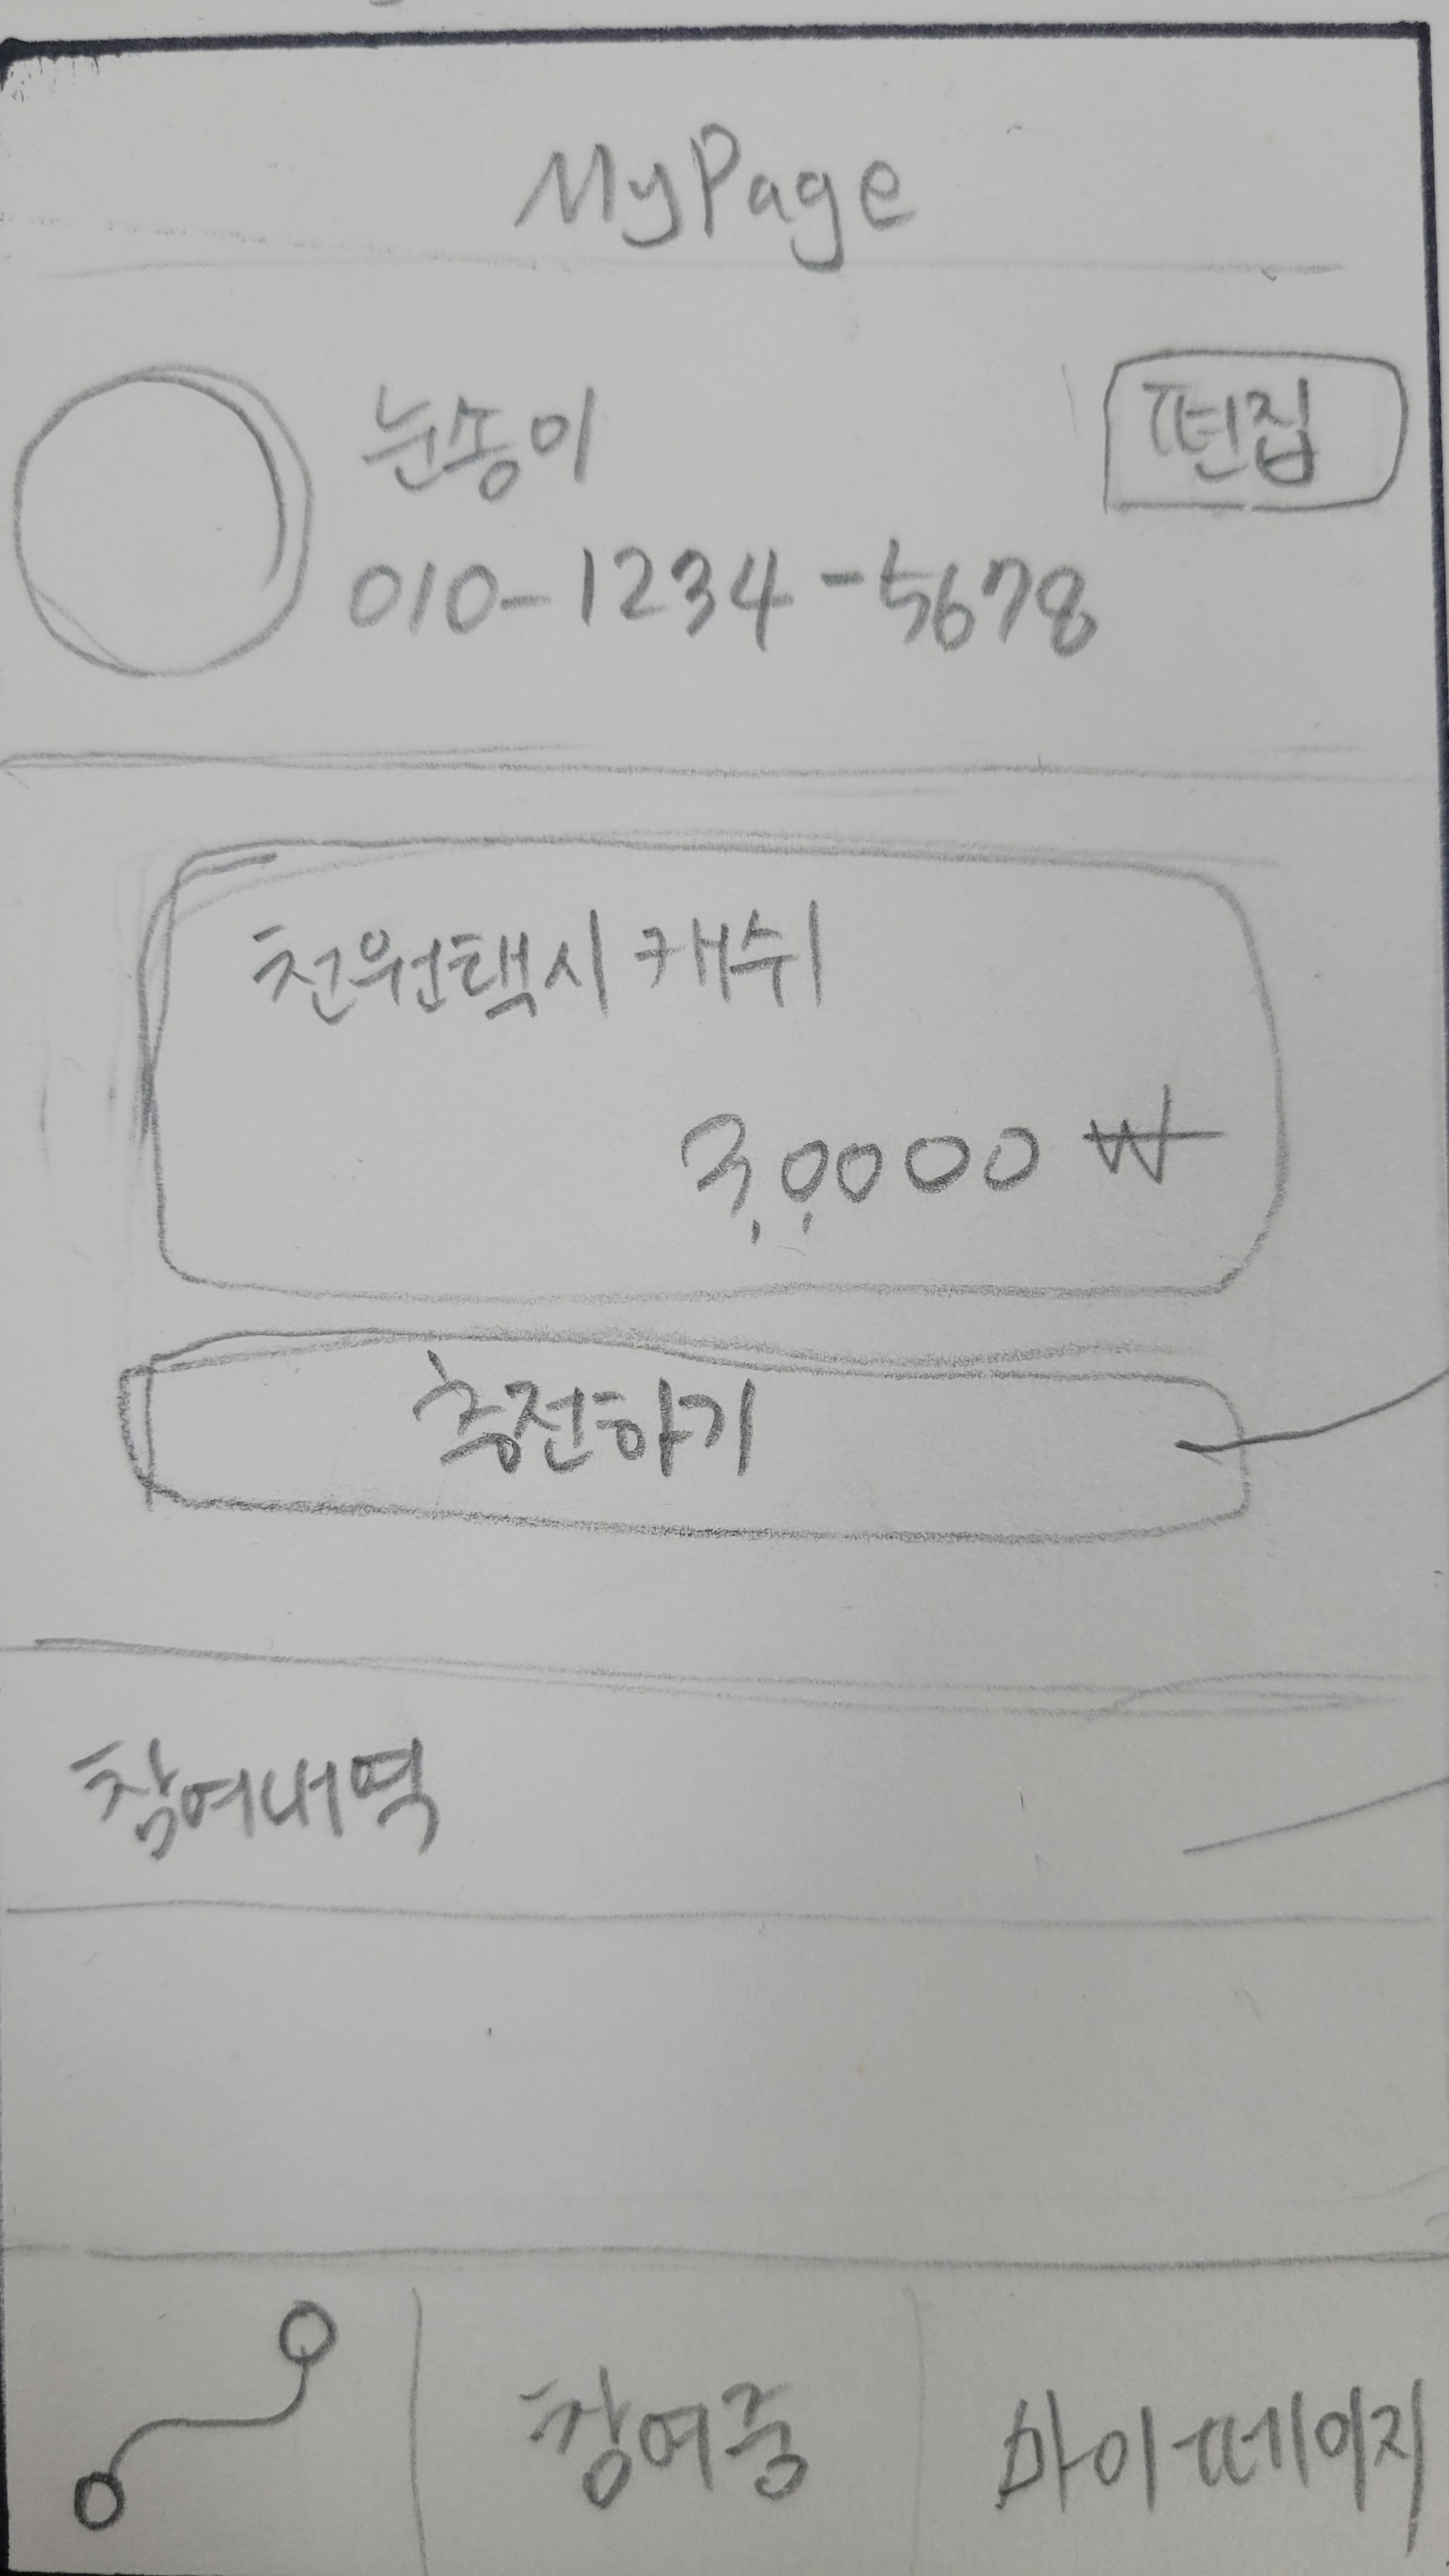 MyPage
눈송이
편집
010-1234-5678
천원택시 캐쉬
3,0,000 ₩
충전하기
참여내역
참여중
마이페이지